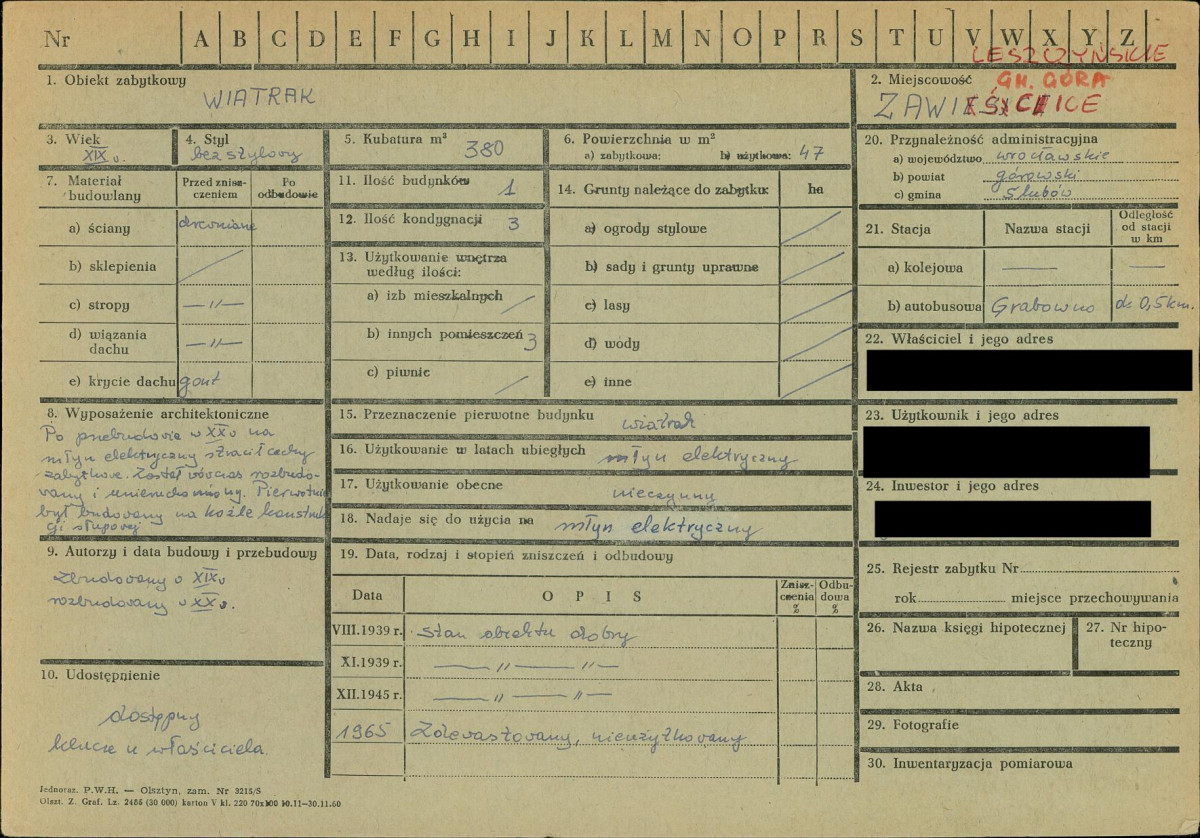 Nr A B C D E F G H I J K L M N O P R S T U V W X Y Z
LESZCZYŃSKIE
1. Obiekt zabytkowy
WIATRAK
2. Miejscowość GM. GÓRA
3. Wiek
XIX w.
4. Styl
bezstylowy
5. Kubatura m³ 380
6. Powierzchnia w m²
a) zabytkowa: b) użytkowa: 47
7. Materiał budowlany
Przed zniszczeniem
Po odbudowie
a) ściany drewniane
b) sklepienia
c) stropy —"—
d) wiązania dachu —"—
e) krycie dachu gont
8. Wyposażenie architektoniczne
Po przebudowie w XX w na
młyn elektryczny stracił cechy
zabytkowe. Został wówczas rozbudo-
wany i unieruchomiony. Pierwotnie
był budowany na koźle konstruk
cji słupowej
9. Autorzy i data budowy i przebudowy
Zbudowany w XIX w
rozbudowany w XX w.
10. Udostępnienie
dostępny
klucze u właściciela.
11. Ilość budynków 1
12. Ilość kondygnacji 3
13. Użytkowanie wnętrza
według ilości:
a) izb mieszkalnych
b) innych pomieszczeń 3
c) piwnic
14. Grunty należące do zabytku: ha
a) ogrody stylowe
b) sady i grunty uprawne
c) lasy
d) wody
e) inne
15. Przeznaczenie pierwotne budynku wiatrak
16. Użytkowanie w latach ubiegłych młyn elektryczny
17. Użytkowanie obecne nieczynny
18. Nadaje się do użycia na młyn elektryczny
19. Data, rodzaj i stopień zniszczeń i odbudowy
Data OPIS Zniszczenia % Odbudowa %
VIII.1939 r. stan obiektu dobry
XI.1939 r. —"—"—
XII.1945 r. —"—"—
1965 Zdewastowany, nieużytkowany
20. Przynależność administracyjna
a) województwo wrocławskie
b) powiat górowski
c) gmina Slubów
21. Stacja Nazwa stacji Odległość od stacji w km
a) kolejowa — —
b) autobusowa Grabowno do 0,5 km.
22. Właściciel i jego adres
23. Użytkownik i jego adres
24. Inwestor i jego adres
25. Rejestr zabytku Nr
rok miejsce przechowywania
26. Nazwa księgi hipotecznej
27. Nr hipoteczny
28. Akta
29. Fotografie
30. Inwentaryzacja pomiarowa
Jednoraz. P.W.H. — Olsztyn, zam. Nr 3215/S
Olszt. Z. Graf. Lz. 2485 (30 000) karton V kl. 220 70x100 10.11—30.11.60